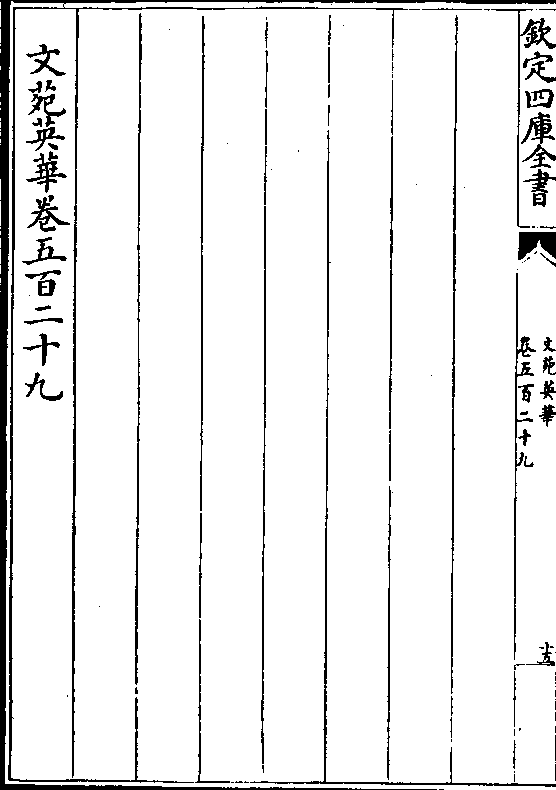 欽定四庫全書
文苑英華
卷五百二十九
十五
文苑英華卷五百二十九